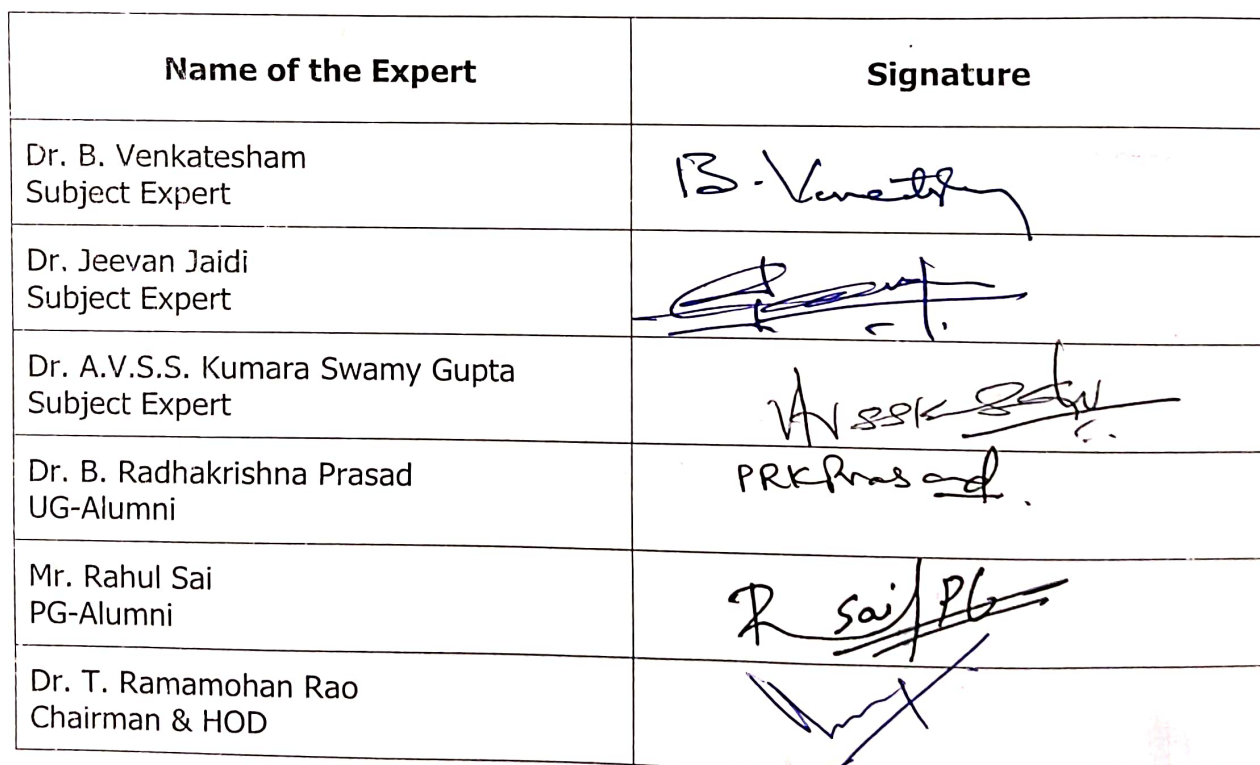 Name of the Expert
Signature
Dr. B. Venkatesham
Subject Expert
B. Venkatesham
Dr. Jeevan Jaidi
Subject Expert
Dr. A.V.S.S. Kumara Swamy Gupta
Subject Expert
AVSSK
Dr. B. Radhakrishna Prasad
UG-Alumni
PRKPrasad.
Mr. Rahul Sai
PG-Alumni
R Sai PG
Dr. T. Ramamohan Rao
Chairman & HOD